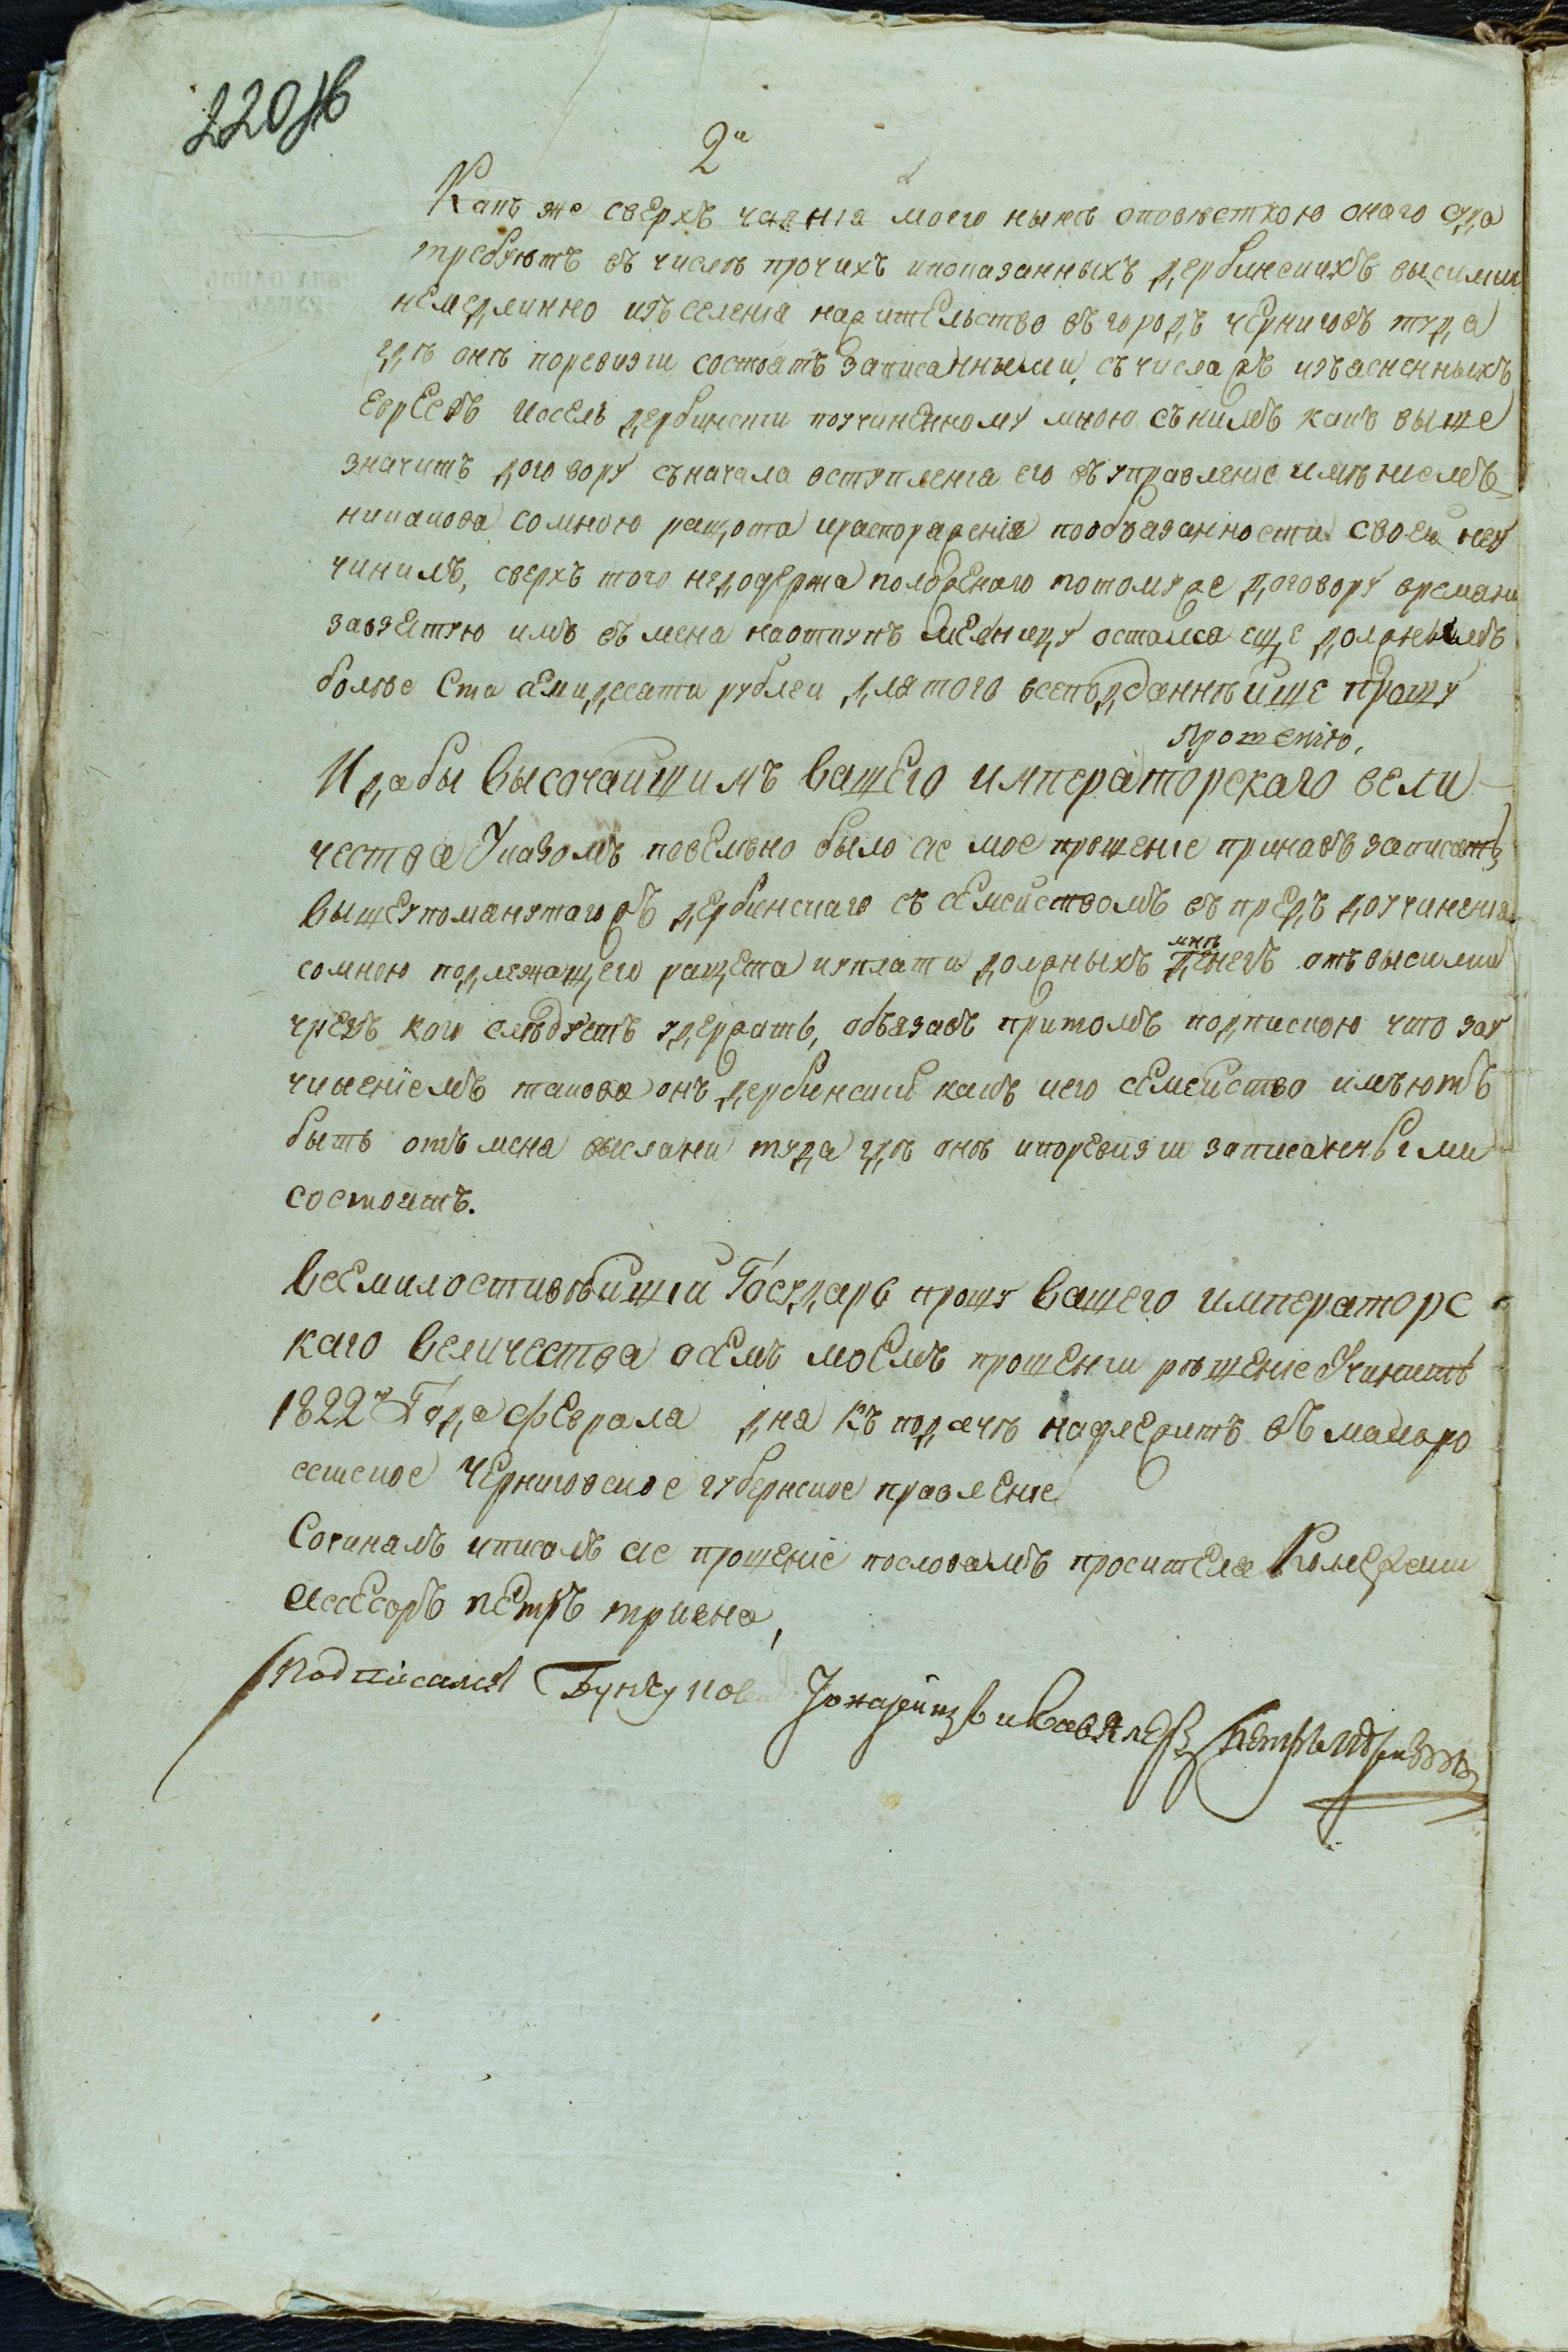 220 об
2е
Какъ же сверхъ чаянія моего нынѣ оповѣсткою онаго суда
требуютъ въ числѣ прочихъ и показанныхъ дербинскихъ высилки
немедлинно изъ селенія на жительство въ городъ черниговъ туда
гдѣ онѣ по ревизіи состоятъ записанными, съ числа жъ изъясненныхъ
евреевъ иосель дербинскій по учиненному мною съ нимъ какъ выше
значитъ договору съ начала вступленія его въ управленіе имѣніемъ
никакова со мною ращота и распораженія по обязанности своей не у
чинилъ, сверхъ того недодержа положенаго по тому же договору времани
за взятую имъ въ мена на откупъ мельницу остался еще должнымъ
болѣе Ста семидесати рублеи, для того всеподданнѣйше прошу
Прошенію,
И дабы Высочайшимъ Вашего императорскаго вели
чества Указомъ повелѣно было сие мое прошеніе принявъ записать,
вышеупоманутаго жъ дербинскаго съ семействомъ въ предъ до учиненія
со мною подлежащего ращета и уплати должныхъ мнѣ денегъ отъ высилки
чрезъ кого слѣдуетъ удержать, обязавъ притомъ подпискою что за у
чиненіемъ такова онъ дербинскій какъ и его семейство имѣютъ
быть отъ мена высланы туда гдѣ онѣ и по ревизіи записанными
состоитъ.
Всемилостивѣйшій Государь прошу Вашего императорс
каго Величества о семъ моемъ прошеніи рѣшеніе Учинить
1822го Года февраля дна къ подачѣ надлежитъ въ малоро
ссиское Черниговское губернское правленіе
Сочинялъ и писалъ сие прошеніе по словамъ просителя Колежскии
ассесоръ петръ тризна,
Подписался Бунчуковый Товарищъ и Кавалеръ